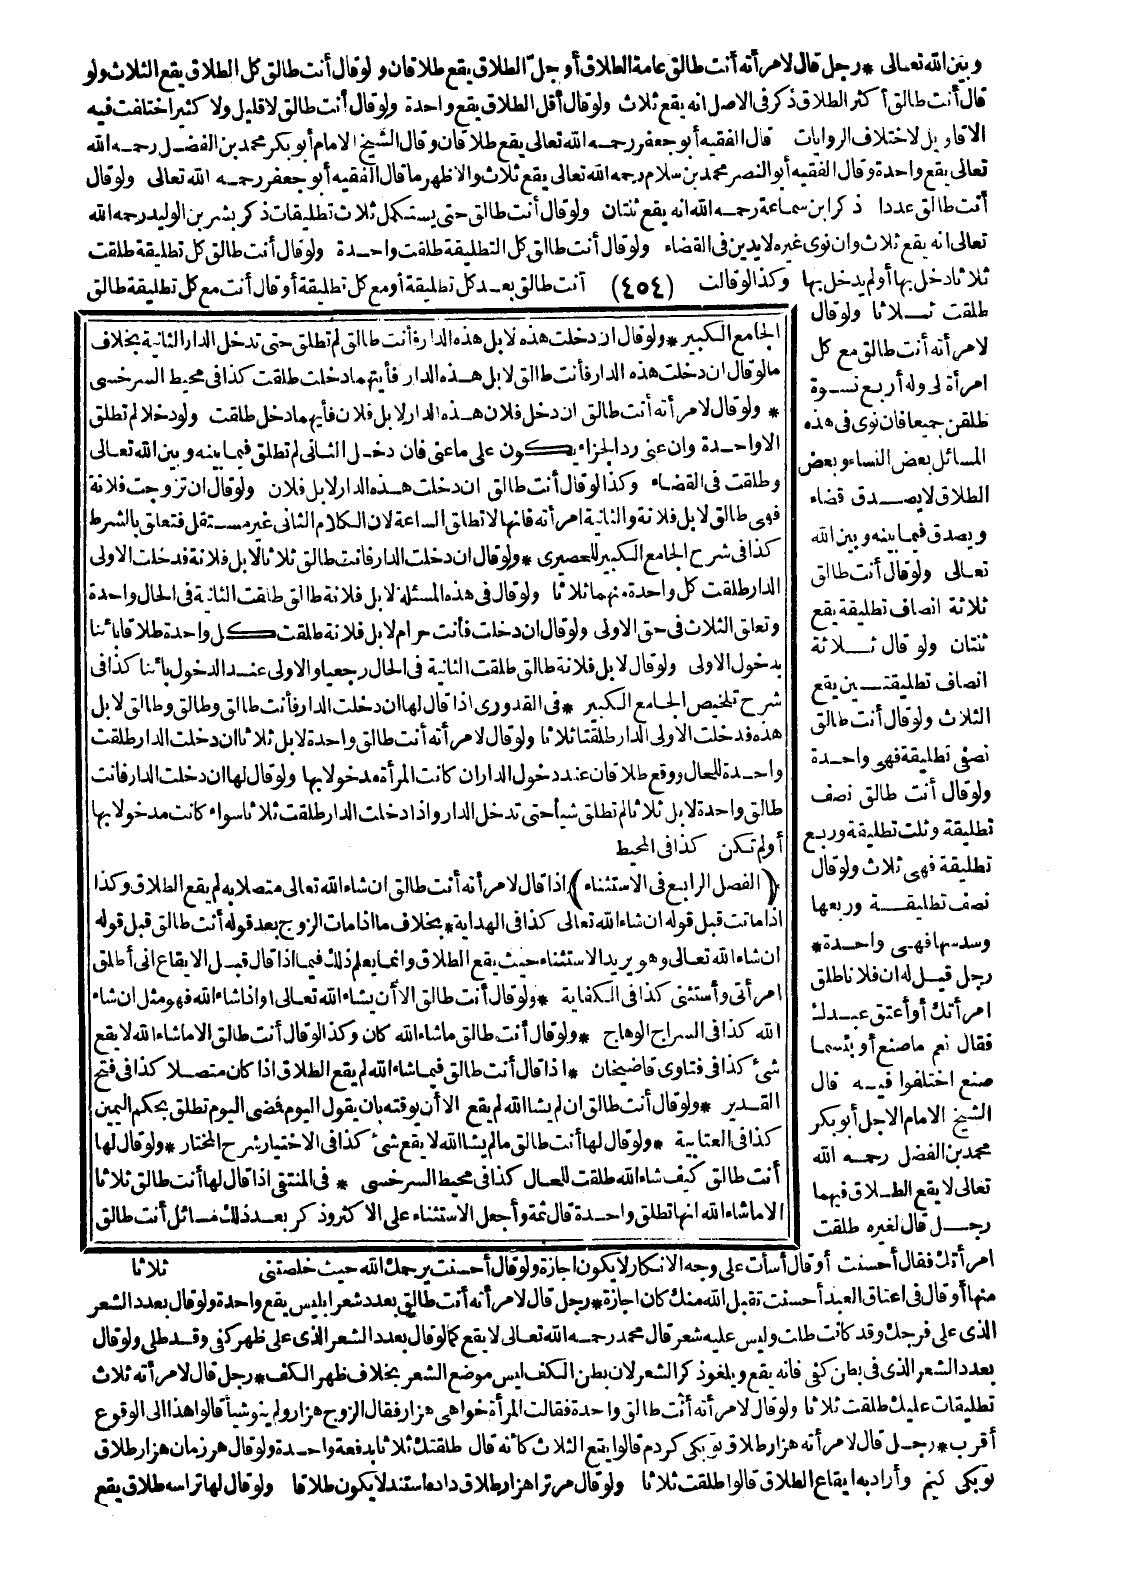 وبين الله تعالى * رجل قال لامرأته أنت طالق عامة الطلاق أو جل الطلاق يقع طلاقان ولو قال أنت طالق كل الطلاق يقع الثلاث ولو
قال أنت طالق أكثر الطلاق ذكر فى الاصل انه يقع ثلاث ولو قال أقل الطلاق يقع واحدة ولو قال أنت طالق لا قليل ولا كثير اختلفت فيه
الاقاويل لاختلاف الروايات قال الفقيه أبو جعفر رحمه الله تعالى يقع طلاقان وقال الشيخ الامام أبو بكر محمد بن الفضل رحمه الله
تعالى يقع واحدة وقال الفقيه أبو النصر محمد بن سلام رحمه الله تعالى يقع ثلاث والاظهر ما قال الفقيه أبو جعفر رحمه الله تعالى ولو قال
أنت طالق عددا ذكر ابن سماعة رحمه الله انه يقع ثنتان ولو قال أنت طالق حتى يستكمل ثلاث تطليقات ذكر بشر بن الوليد رحمه الله
تعالى انه يقع ثلاث وان نوى غيره لا يدين فى القضاء ولو قال أنت طالق كل التطليقة طلقت واحدة ولو قال أنت طالق كل تطليقة طلقت
ثلاثا دخل بها أو لم يدخل بها وكذا لو قالت (٤٥٤) أنت طالق بعد كل تطليقة أو مع كل تطليقة أو قال أنت مع كل تطليقة طالق
طلقت ثلاثا ولو قال
لامرأته أنت طالق مع كل
امرأة لى وله أربع نسوة
طلقن جميعا فان نوى فى هذه
المسائل بعض النساء وبعض
الطلاق لا يصدق قضاء
ويصدق فيما بينه وبين الله
تعالى ولو قال أنت طالق
ثلاثة انصاف تطليقة يقع
ثنتان ولو قال ثلاثة
انصاف تطليقتين يقع
الثلاث ولو قال أنت طالق
نصفى تطليقة فهى واحدة
ولو قال أنت طالق نصف
تطليقة وثلث تطليقة وربع
تطليقة فهى ثلاث ولو قال
نصف تطليقة وربعها
وسدسها فهى واحدة *
رجل قيل له ان فلانا طلق
امرأتك أو أعتق عبدك
فقال نعم ما صنع أو بئسما
صنع اختلفوا فيه قال
الشيخ الامام الاجل أبو بكر
محمد بن الفضل رحمه الله
تعالى لا يقع الطلاق فيهما
رجل قال لغيره طلقت
الجامع الكبير * ولو قال ان دخلت هذه لا بل هذه الدار فأنت طالق لم تطلق حتى تدخل الدار الثانية بخلاف
ما لو قال ان دخلت هذه الدار فأنت طالق لا بل هذه الدار فأيتهما دخلت طلقت كذا فى محيط السرخسى
* ولو قال لامرأته أنت طالق ان دخل فلان هذه الدار لا بل فلان فأيهما دخل طلقت ولو دخلا لم تطلق
الا واحدة وان عنى رد الجزاء يكون على ما عنى فان دخل الثانى لم تطلق فيما بينه وبين الله تعالى
وطلقت فى القضاء وكذا لو قال أنت طالق ان دخلت هذه الدار لا بل فلان ولو قال ان تزوجت فلانة
فهى طالق لا بل فلانة والثانية امرأته فانها لا تطلق الساعة لان الكلام الثانى غير مستقل فتعلق بالشرط
كذا فى شرح الجامع الكبير للحصيرى * ولو قال ان دخلت الدار فانت طالق ثلاثا لا بل فلانة فدخلت الاولى
الدار طلقت كل واحدة منهما ثلاثا ولو قال فى هذه المسئلة لا بل فلانة طالق طلقت الثانية فى الحال واحدة
وتعلق الثلاث فى حق الاولى ولو قال ان دخلت فأنت حرام لا بل فلانة طلقت كل واحدة طلاقا بائنا
بدخول الاولى ولو قال لا بل فلانة طالق طلقت الثانية فى الحال رجعيا والاولى عند الدخول بائنا كذا فى
شرح تلخيص الجامع الكبير * فى القدورى اذا قال لها ان دخلت الدار فأنت طالق وطالق وطالق لا بل
هذه فدخلت الاولى الدار طلقتا ثلاثا ولو قال لامرأته أنت طالق واحدة لا بل ثلاثا ان دخلت الدار طلقت
واحدة للحال ووقع طلاقان عند دخول الدار ان كانت المرأة مدخولا بها ولو قال لها ان دخلت الدار فانت
طالق واحدة لا بل ثلاثا لم تطلق شيأ حتى تدخل الدار واذا دخلت الدار طلقت ثلاثا سواء كانت مدخولا بها
أو لم تكن كذا فى المحيط
﴿الفصل الرابع فى الاستثناء﴾ اذا قال لامرأته أنت طالق ان شاء الله تعالى متصلا به لم يقع الطلاق وكذا
اذا ماتت قبل قوله ان شاء الله تعالى كذا فى الهداية * بخلاف ما اذا مات الزوج بعد قوله أنت طالق قبل قوله
ان شاء الله تعالى وهو يريد الاستثناء حيث يقع الطلاق وانما يعلم ذلك فيما اذا قال قبل الايقاع انى أطلق
امرأتى وأستثنى كذا فى الكفاية * ولو قال أنت طالق الا أن يشاء الله تعالى أو اذا شاء الله فهو مثل ان شاء
الله كذا فى السراج الوهاج * ولو قال أنت طالق ما شاء الله كان وكذا لو قال أنت طالق الا ما شاء الله لا يقع
شئ كذا فى فتاوى قاضيخان * اذا قال أنت طالق فيما شاء الله لم يقع الطلاق اذا كان متصلا كذا فى فتح
القدير * ولو قال أنت طالق ان لم يشا الله لم يقع الا أن يوقته بان يقول اليوم فمضى اليوم تطلق بحكم اليمين
كذا فى العتابية * ولو قال لها أنت طالق ما لم يشا الله لا يقع شئ كذا فى الاختيار شرح المختار * ولو قال لها
أنت طالق كيف شاء الله طلقت للحال كذا فى محيط السرخسى * فى المنتقى اذا قال لها أنت طالق ثلاثا
الا ما شاء الله انها تطلق واحدة قال ثمة وأجعل الاستثناء على الاكثر وذكر بعد ذلك مسائل أنت طالق
ثلاثا
امرأتك فقال أحسنت أو قال أسأت على وجه الانكار لا يكون اجازة ولو قال أحسنت يرحمك الله حيث خلصتنى
منها أو قال فى اعتاق العبد أحسنت تقبل الله منك كان اجازة * رجل قال لامرأته أنت طالق بعدد شعر ابليس يقع واحدة ولو قال بعدد الشعر
الذى على فرجك وقد كانت طلت وليس عليه شعر قال محمد رحمه الله تعالى لا يقع كما لو قال بعدد الشعر الذى على ظهر كفى وقد طلى ولو قال
بعدد الشعر الذى فى بطن كفى فانه يقع ويلغو ذكر الشعر لان بطن الكف ليس موضع الشعر بخلاف ظهر الكف * رجل قال لامرأته ثلاث
تطليقات عليك طلقت ثلاثا ولو قال لامرأته أنت طالق واحدة فقالت المرأة خواهى هزار فقال الزوج هزار ولم ينو شيأ قالوا هذا الى الوقوع
أقرب * رجل قال لامرأته هزار طلاق تو بكى كردم قالوا يقع الثلاث كأنه قال طلقتك ثلاثا بدفعة واحدة ولو قال هر زمان هزار طلاق
تو بكى كنم وأراد به ايقاع الطلاق قالوا طلقت ثلاثا ولو قال مر ترا هزار طلاق داده استند لا يكون طلاقا ولو قال لها ترا سه طلاق يقع